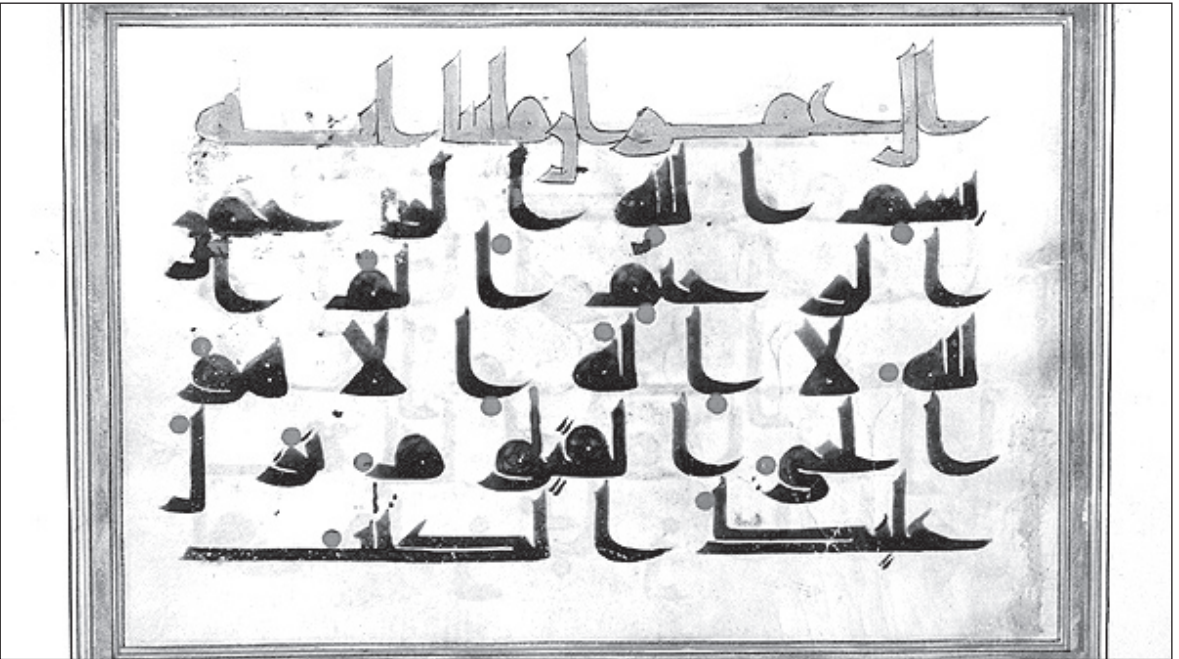 ال عمران مائتا ايه
بسم الله الرحمن
الرحيم الم ا
لله لا اله الا هو
الحى القيوم نزل
عليك الكتب